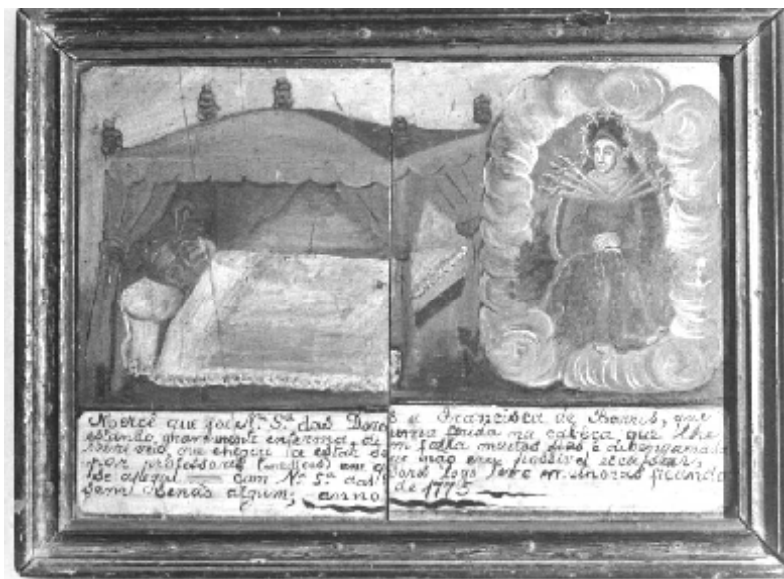 Mercê que fos N.ª S.ª das Dores a Francisca de Barros, que
estando gravemente enferma, de uma caida na cabeça que lhe
que chegou a estar sem falla muitos dias e dezenganada
por professores (medicos) que não era possivel escapar,
se apegou com N.ª S.ª das Dores logo teve melhoras ficando
sem Senão algum; anno de 1775